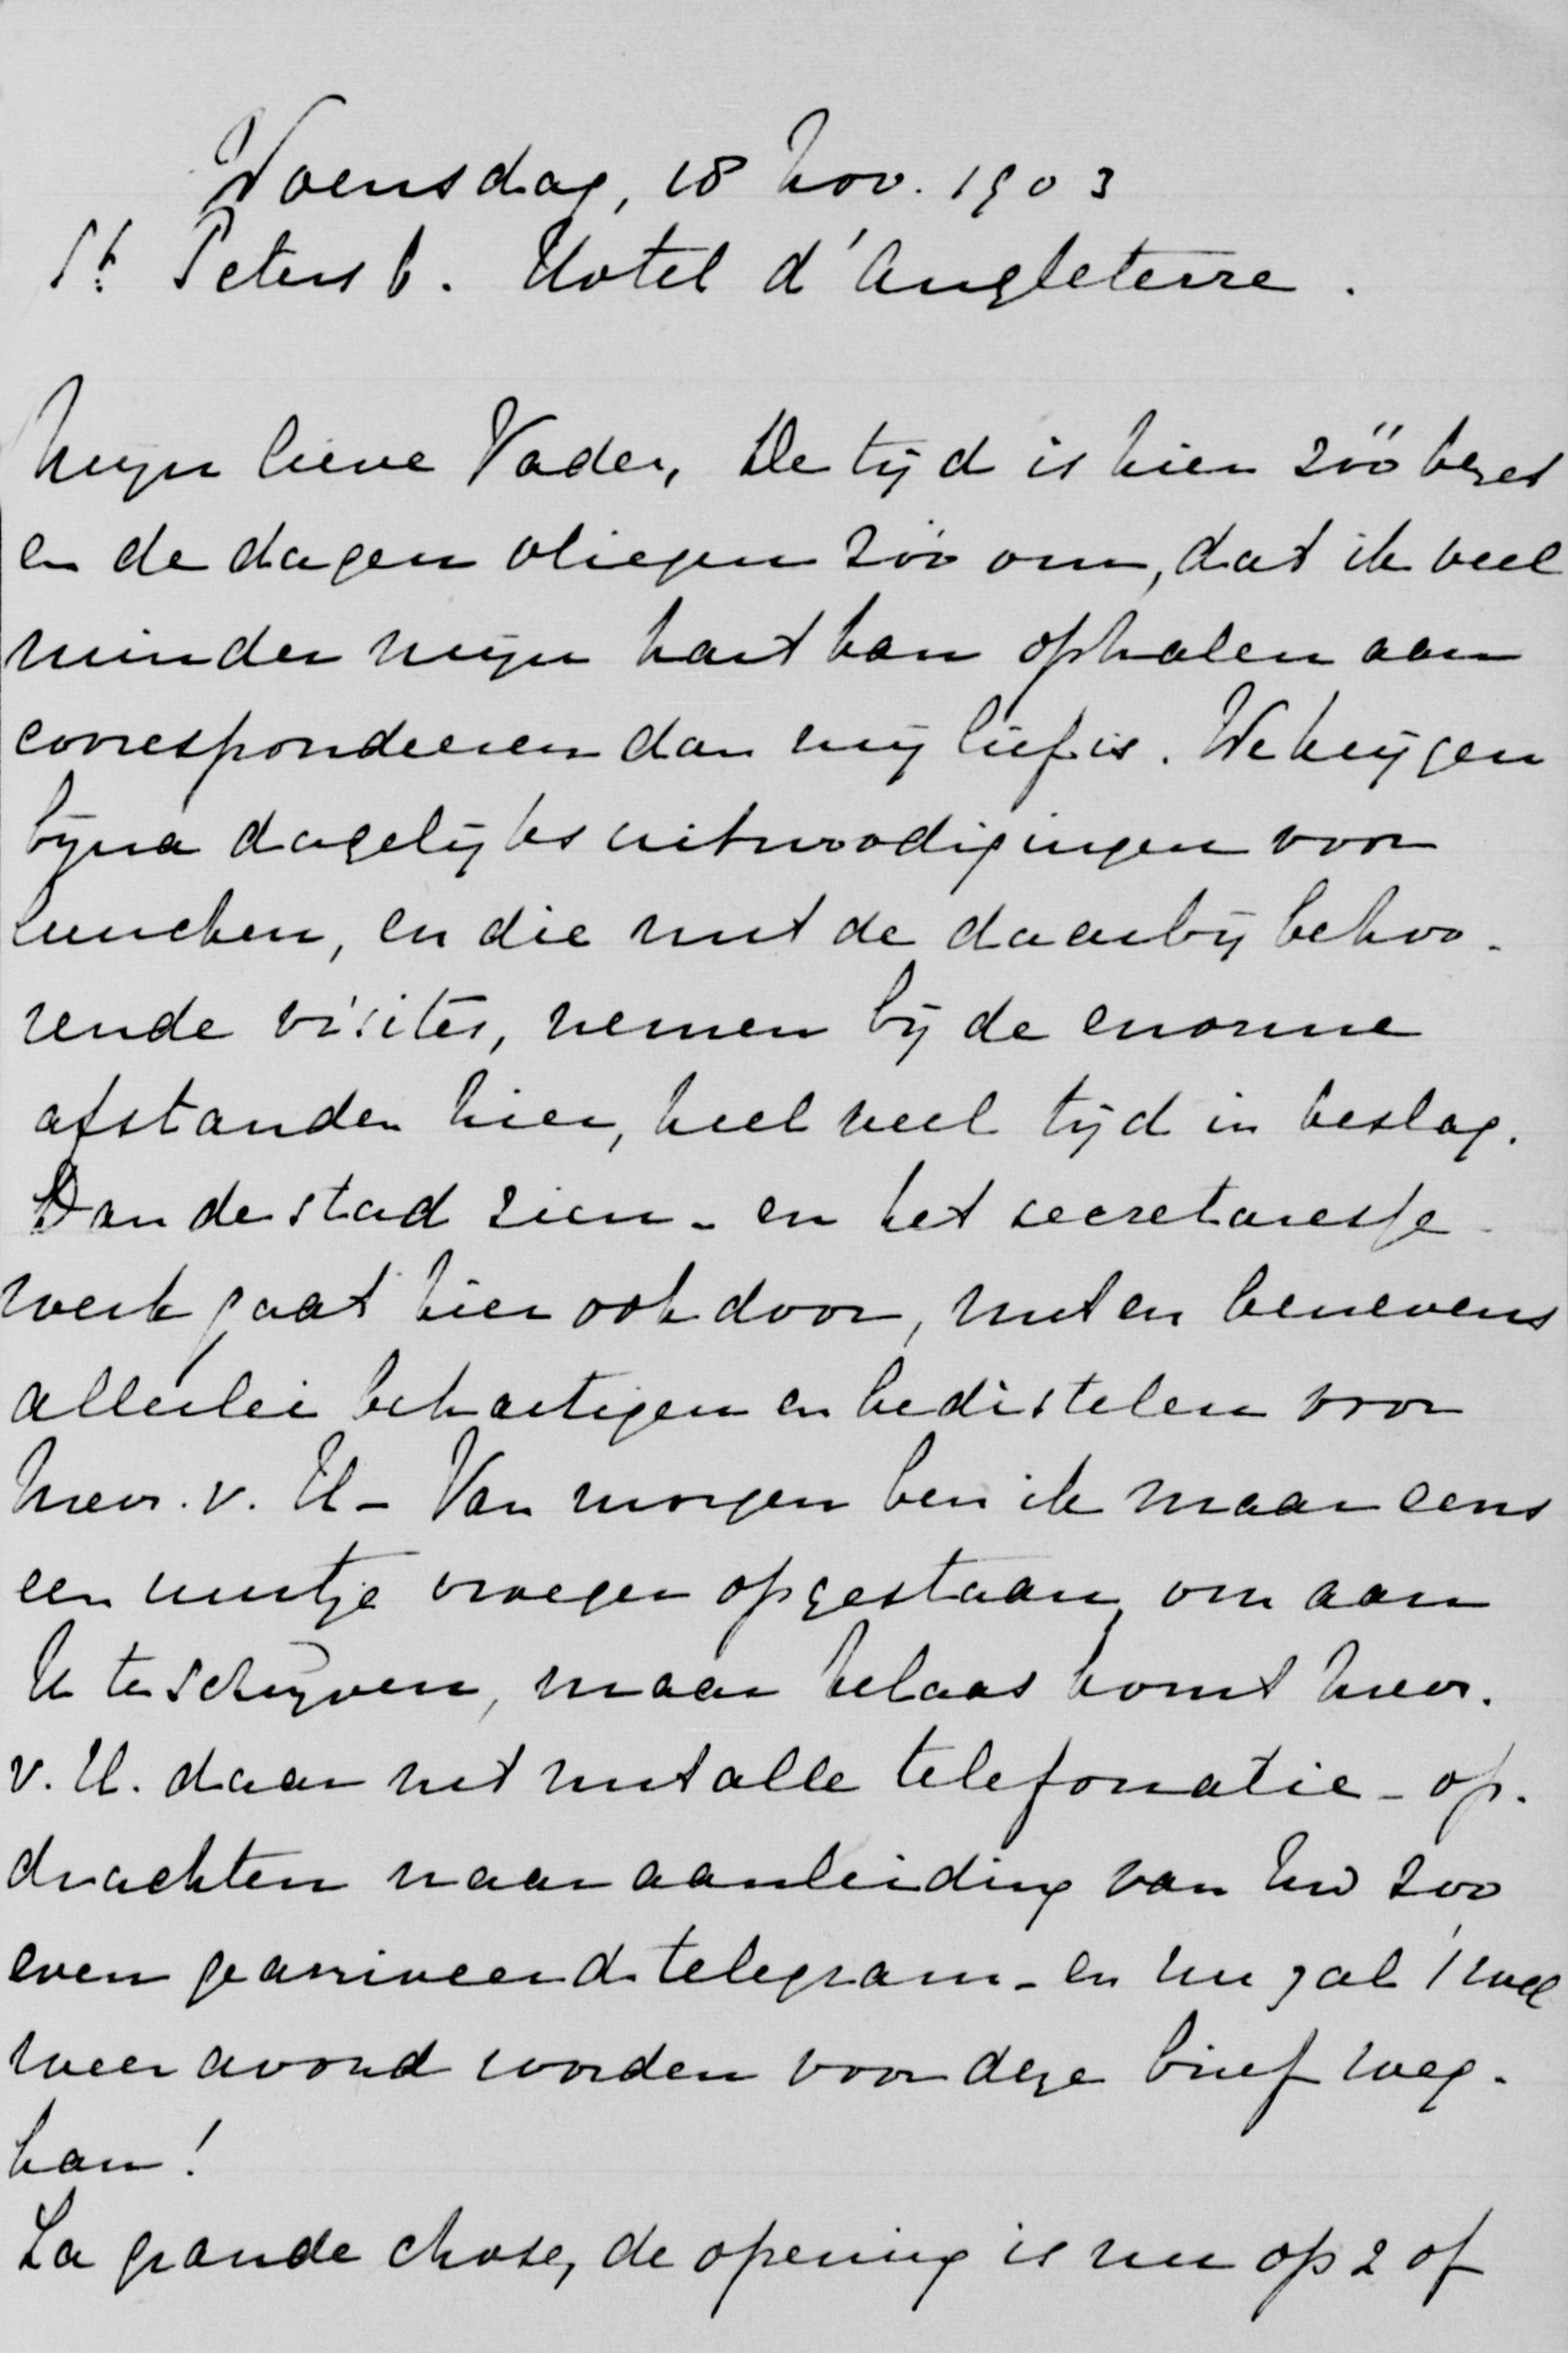 Woensdag, 18 Nov. 1903
St. Petersb. Hotel d'Angleterre.
Mijn lieve Vader, De tijd is hier zóó bezet
en de dagen vliegen zóó om, dat ik veel
minder mijn hart kan ophalen aan
correspondeeren dan mij lief is. We krijgen
bijna dagelijks uitnoodigingen voor
lunchen, en die met de daarbij behoo-
rende visites, nemen bij de enorme
afstanden hier, heel veel tijd in beslag.
Dan de stad zien - en het secretaresse-
werk gaat hier ook door, met en benevens
allerlei behartigen en bedistelen voor
Mevr. v. U - Van morgen ben ik maar eens
een uurtje vroeger opgestaan, om aan
U te schrijven, maar helaas komt Mevr.
v. U. daar net met alle telefonatie-op-
drachten naar aanleiding van Uw zoo
even gearriveerd telegram - en nu zal 't wel
weer avond worden voor deze brief weg-
kan!
La grande chose, de opening is nu op 2 of